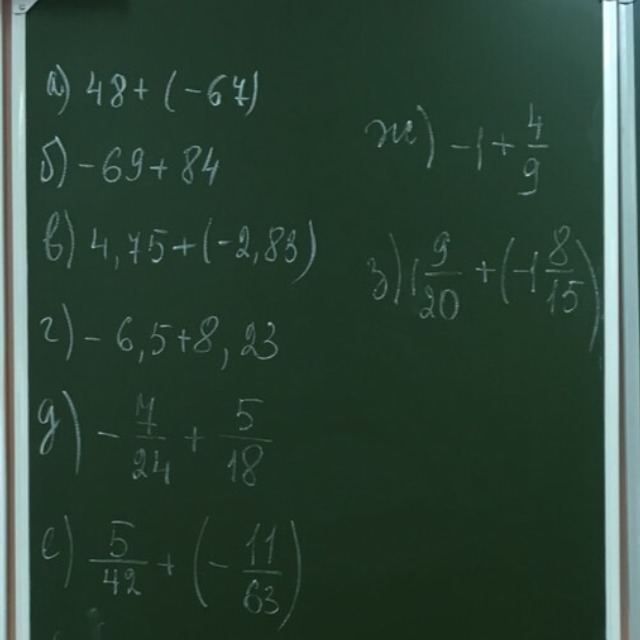 а) 48 + (-67)
б) -69 + 84
в) 4,75 + (-2,83)
г) - 6,5 + 8,23
д) - 7/24 + 5/18
е) 5/42 + (- 11/63)
ж) -1 + 4/9
з) 1 9/20 + (-1 8/15)